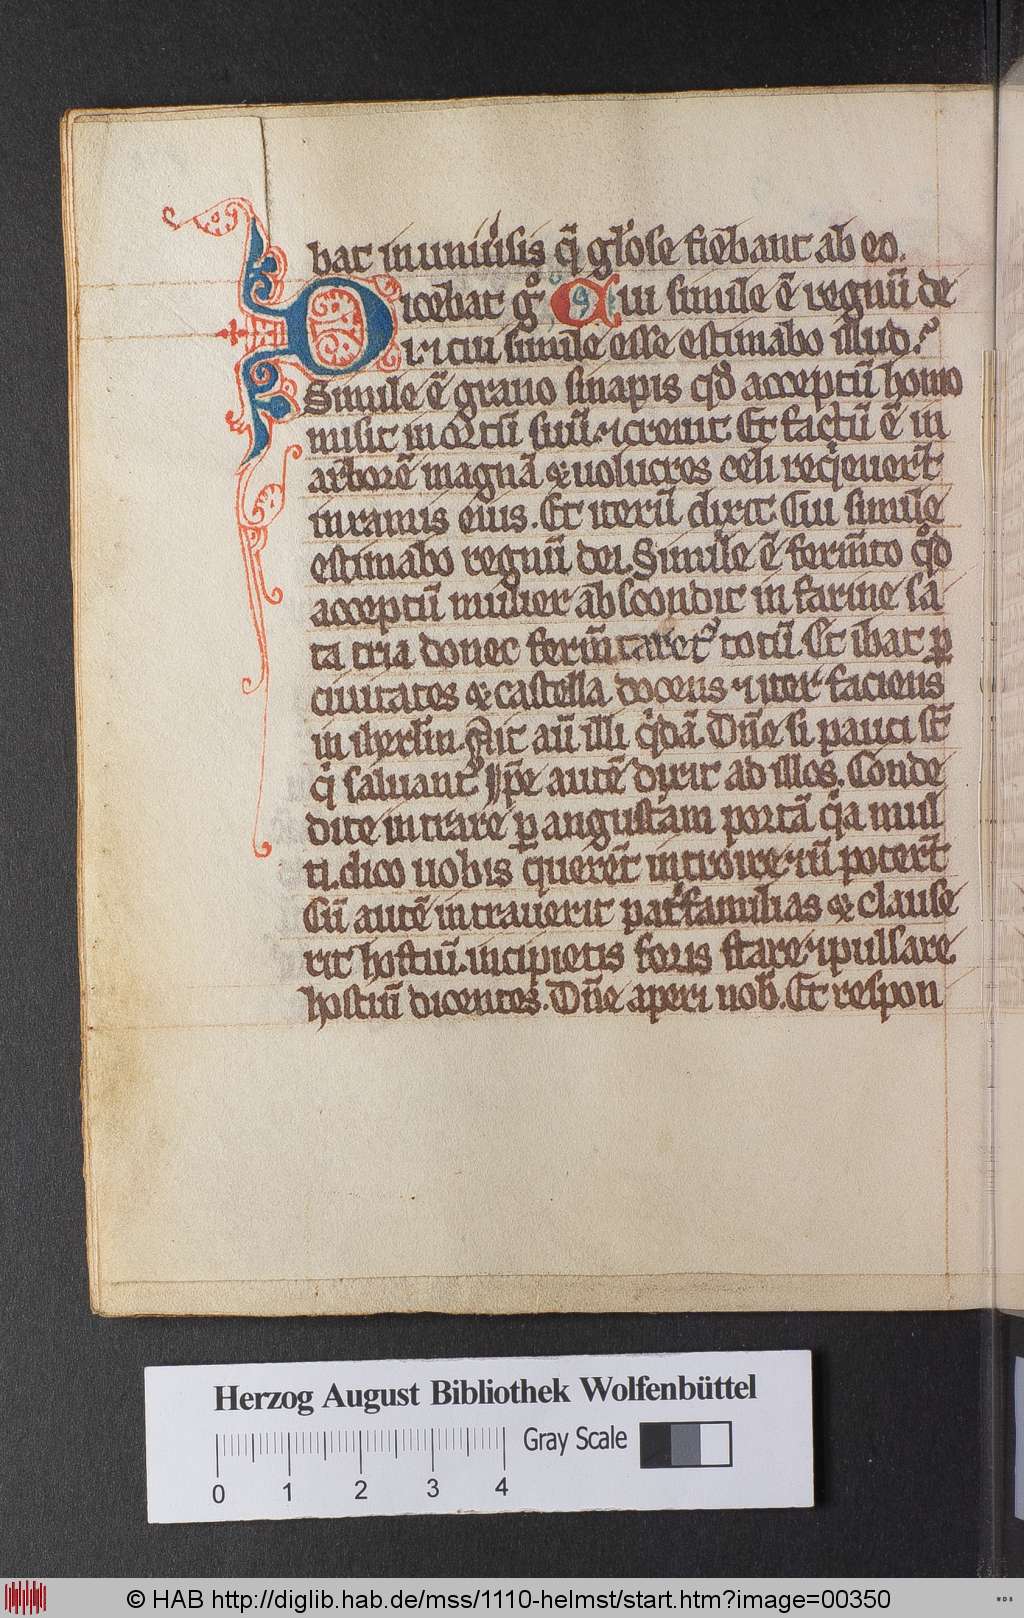 bat in uniũsis q̃ glõse fiẽbant ab eo.
Dicẽbat gͦ Cui simile ẽ regnũ de
i. ⁊ cui simile esse estimabo illud.
Simile ẽ grano sinapis qͦd acceptũ homo
misit in ortũ suũ. ⁊ creuit. Et factũ ẽ in
arborẽ magnã & uolucres celi requeuerũt
in ramis eius. Et iterũ dixit. Cui simile
estimabo regnũ dei. Simile ẽ ferm̃to qͦd
acceptũ mulier abscondit in farine sa
ta tria donec ferm̃taret² totũ. Et ibat ꝑ
ciuitates & castella docens ⁊ iter faciens
in iherl̃m. Ait aũ illi qͥdã. Dñe si pauci st̃
qͥ saluant². Ip̃e autẽ dixit ad illos. Conde
dite intrare ꝑ angustam portã qͥa mul
ti. dico uobis querẽt introire ⁊ nͦ poterũt
Cũ autẽ intrauerit pat̃familias & clause
rit hostiũ. incipietis foris stare ⁊ pulsare
hostiũ dicentes. Dñe aperi nob̃. Et respon
Herzog August Bibliothek Wolfenbüttel
0 1 2 3 4 Gray Scale
© HAB http://diglib.hab.de/mss/1110-helmst/start.htm?image=00350